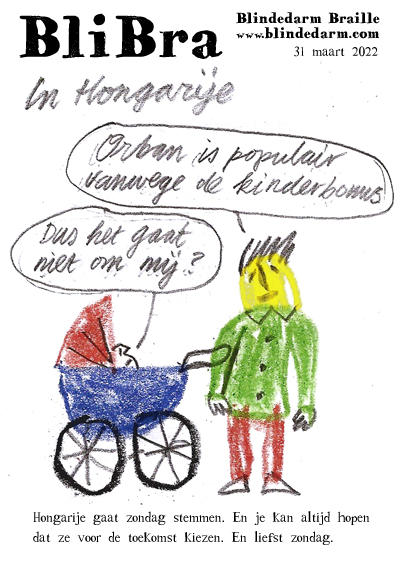 BliBra
Blindedarm Braille
www.blindedarm.com
31 maart 2022
In Hongarije
Orban is populair
vanwege de kinderbonus
Dus het gaat
niet om mij?
Hongarije gaat zondag stemmen. En je kan altijd hopen
dat ze voor de toekomst kiezen. En liefst zondag.